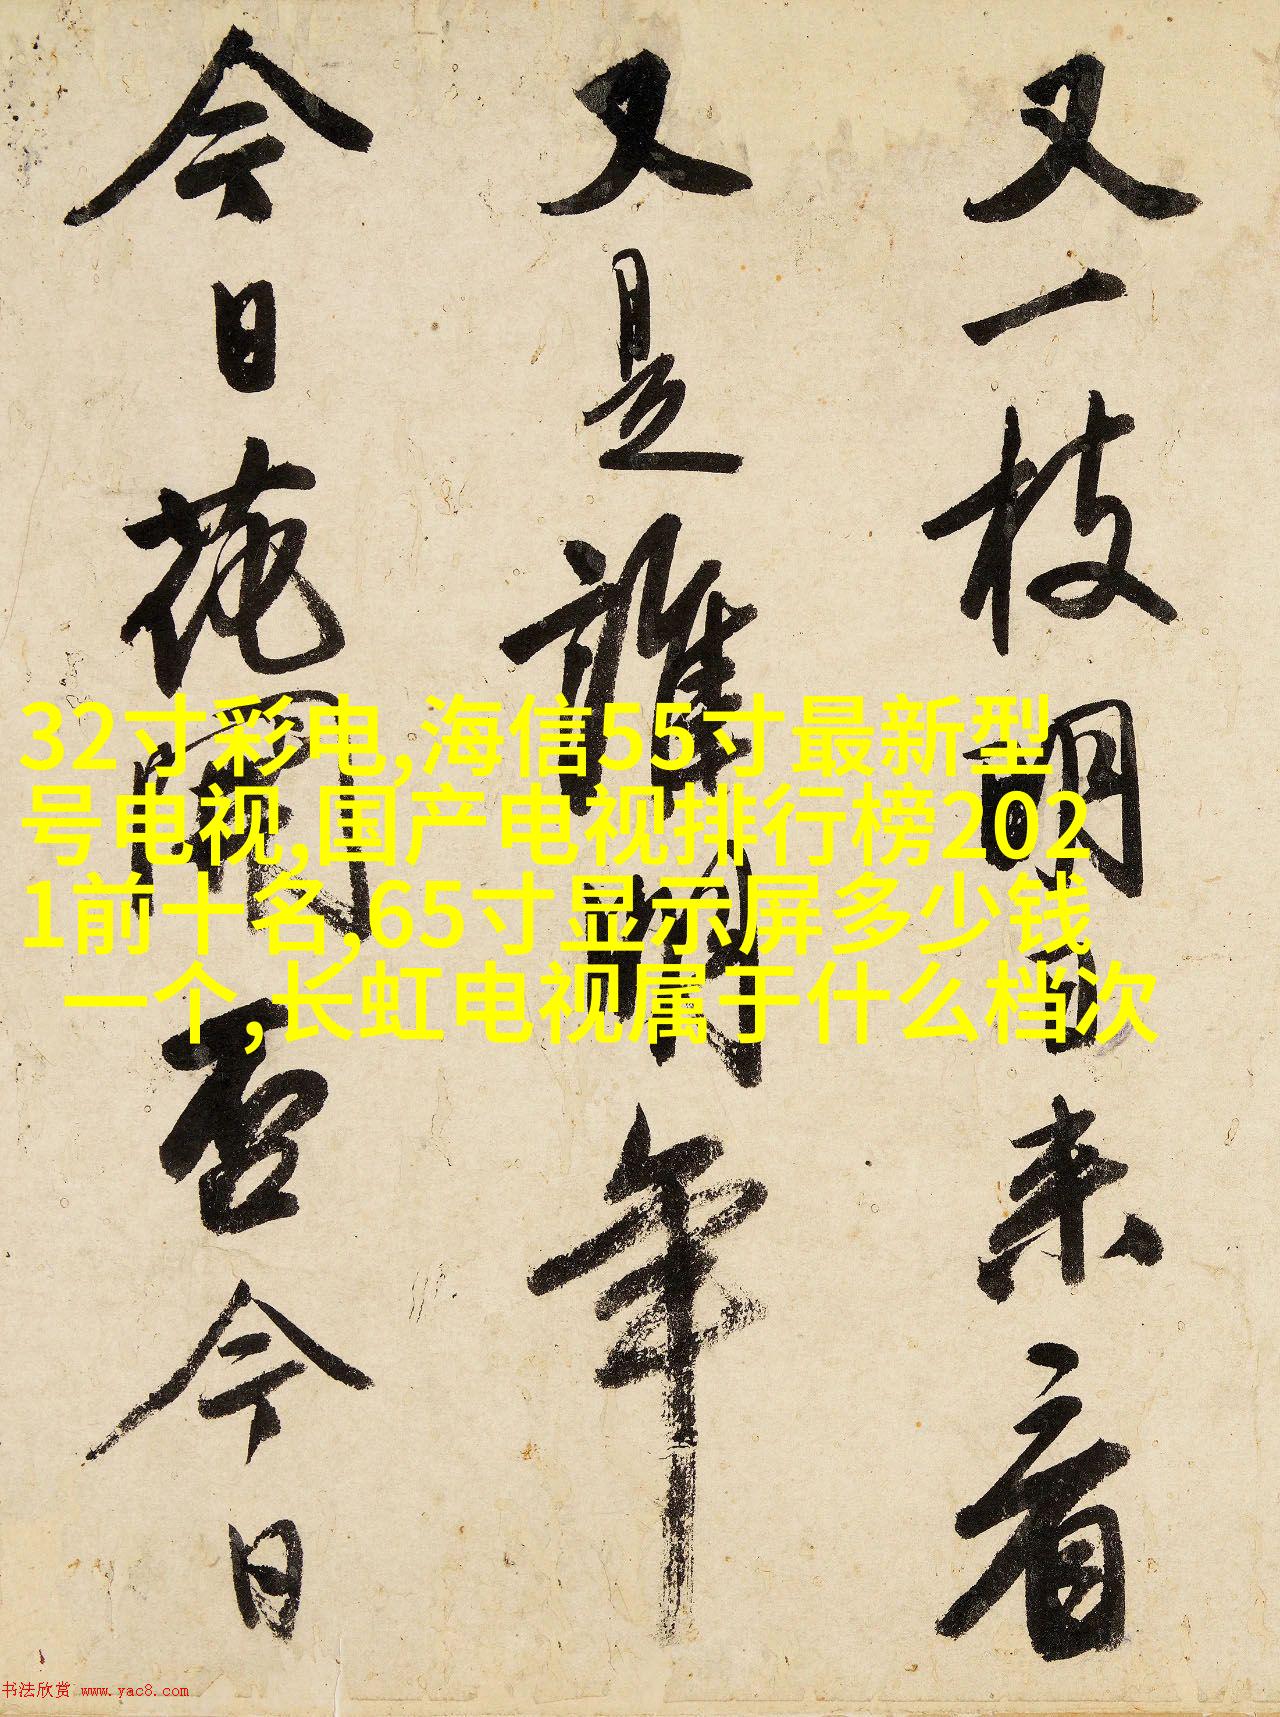 又一枝明日来看
又是誰明年
今日花開否今日
32寸彩电,海信55寸最新型
号电视,国产电视排行榜202
1前十名,65寸显示屏多少钱
一个,长虹电视属于什么档次
书法欣赏 www.yac8.com